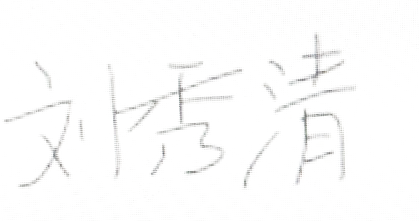 刘秀清